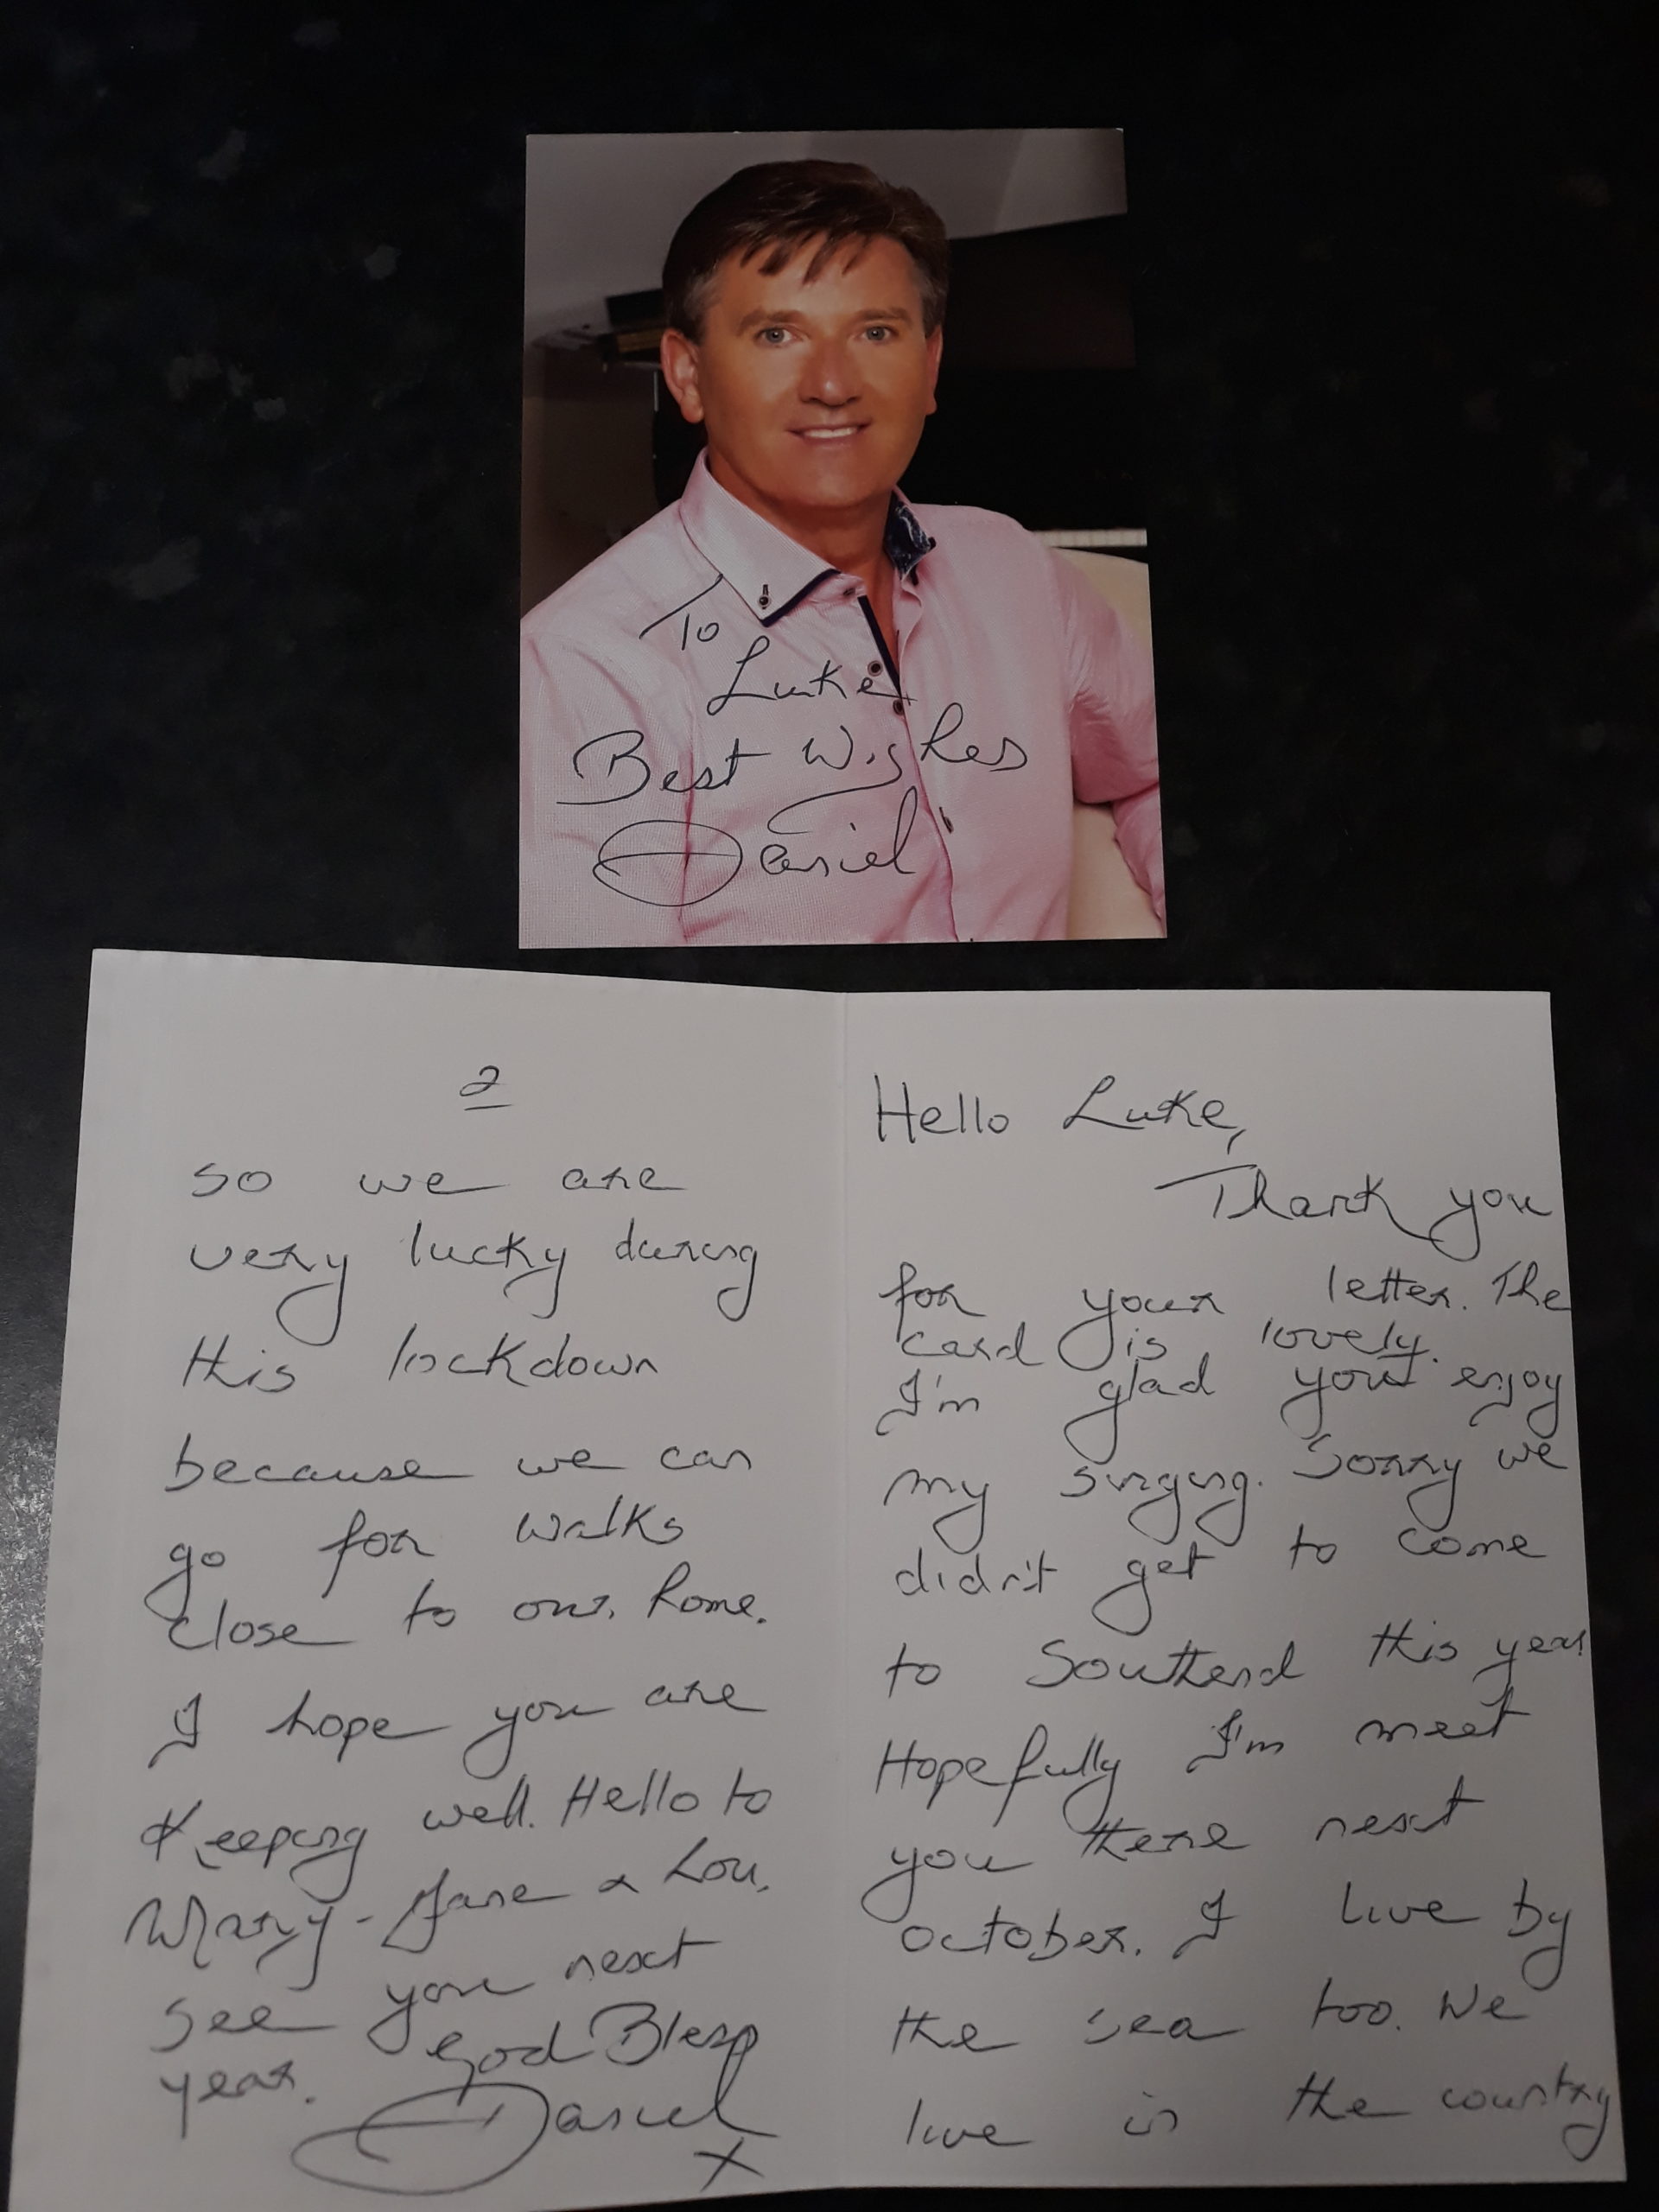 To
Luke
Best Wishes
Daniel
Hello Luke,
Thank you
for your letter. The
card is lovely.
I'm glad you enjoy
my singing. Sorry we
didn't get to come
to Southend this year
Hopefully I'm meet
you there next
october. I live by
the sea too. We
live in the country
2
so we are
very lucky during
this lockdown
because we can
go for walks
close to our home.
I hope you are
Keeping well. Hello to
Mary-Jane & Lou.
see you next
year. God Bless
Daniel
x